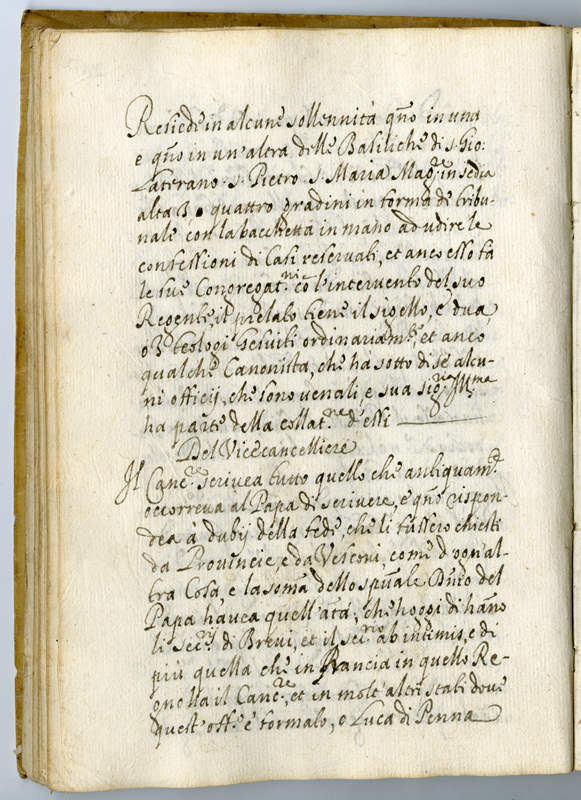 Resiede in alcune sollennità qño in una
e qño in un'altra delle Basiliche di s. Gio:
Laterano s. Pietro s. Maria Mag.re in sedia
alta 3 o quattro gradini in forma de tribu-
nale con la bacchetta in mano ad udire le
confessioni di Casi reservati, et anco esso fa
le sue Congregat.ni cõ l'intervento del suo
Regente, il prelato tiene il sigello, e dua,
o 3 teologi Gesuiti ordinariam.te, et anco
qualche Canonista, che ha sotto di se alcu-
ni officij, che sono venali, e sua sig.ria Ill.ma
ha parte della collat.ne d'essi
Del Vicecancelliere
Il Canc.re scrivea tutto quello che antiquam.te
occorreva al Papa di scrivere, e qño rispon-
dea à dubij della fede, che li fussero chiesti
da Provincie, e da Vescovi, come d'ogn'al-
tra Cosa, e la soma dello spũale Dñio del
Papa havea quell'ata, che hoggi di hãno
li Sec.rij di Brevi, et il sec.rio ab intimis, e di
più quella che in Francia in quello Re-
gno ha il Canc.re, et in molt'altri stati dove
quest'off.o è formato, o Luca di Penna